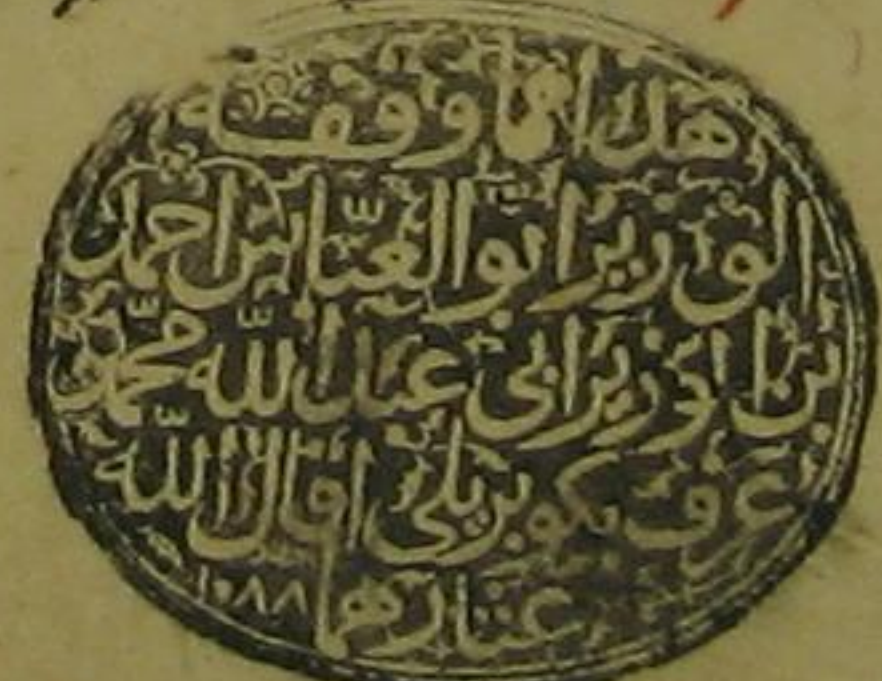 هذا مما وقفه
الوزير ابو العبّاس احمد
بن الوزير ابي عبد اللّه محمّد
عرف بكوبريلي اقال اللّه
عثارهما ١٠٨٨